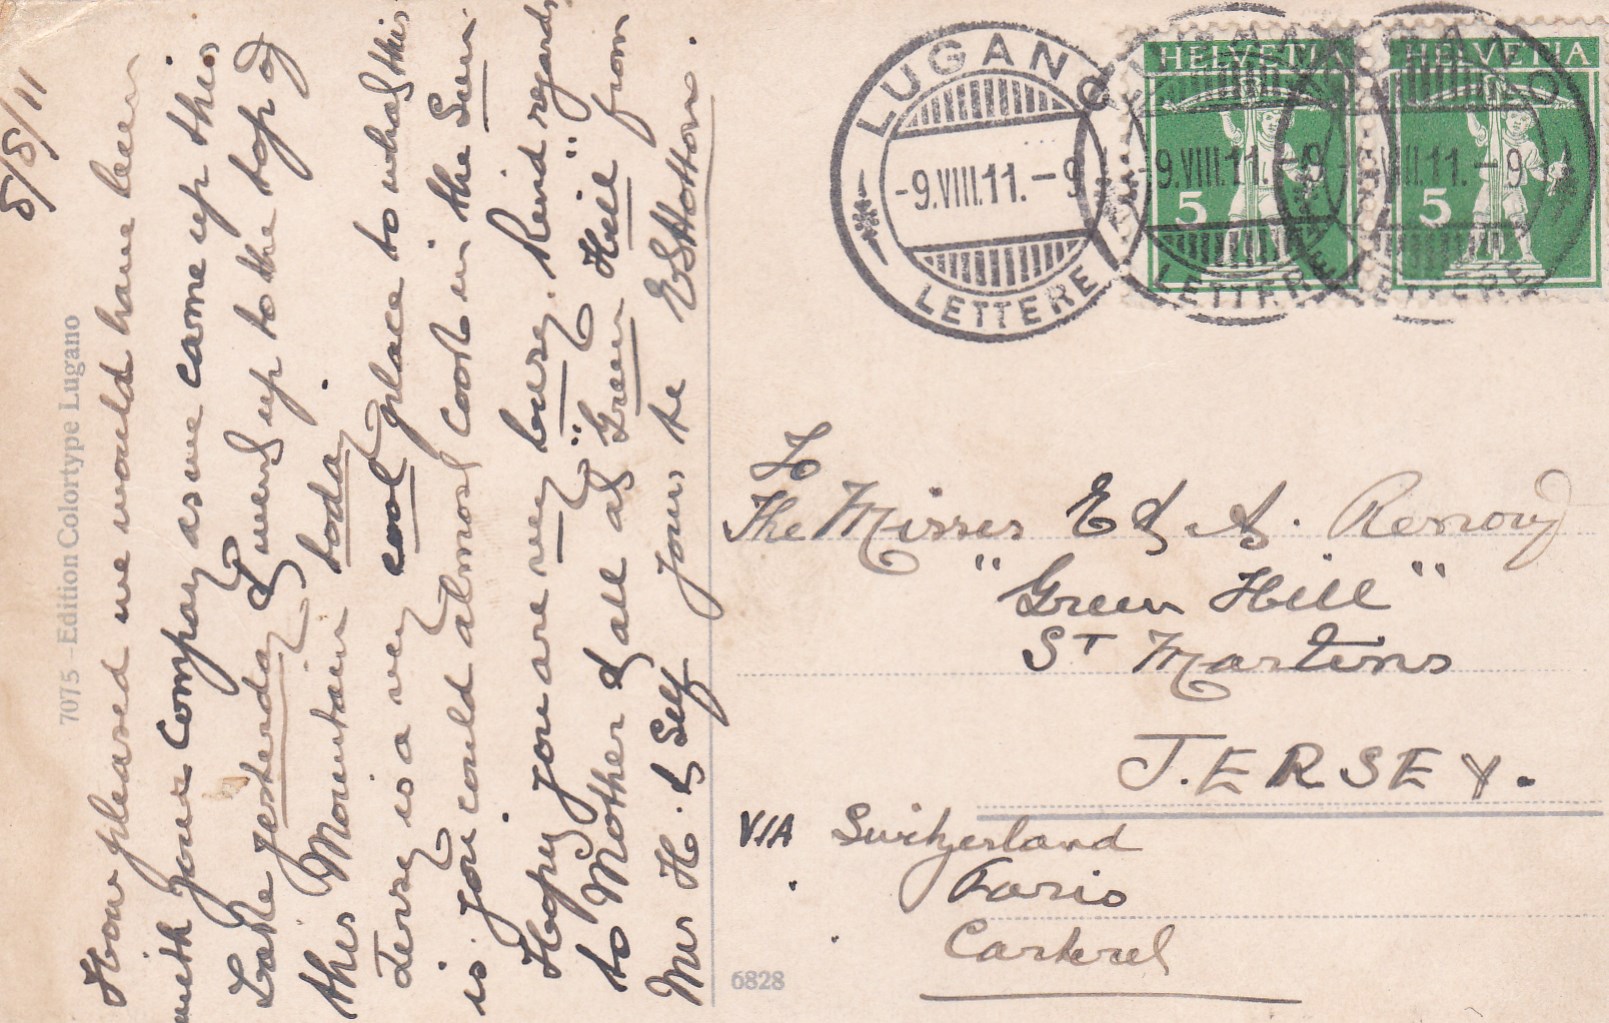 5/8/11
How pleased we would have been
with your Company as we came up this
Lake yesterday & went up to the top of
this Mountain today.
Jersey is a very cool place to what this
is. you could almost cook in the Sun.
Hoping you are very busy. Kind regards
to Mother & all at "Green Hill" from
Mrs H. & Self yours te E S Hottom.
7075 – Edition Colortype Lugano
6828
LUGANO
-9.VIII.11.-9
LETTERE
LUGANO
-9.VIII.11.-9
LETTERE
LUGANO
VIII.11.-9
LETTERE
HELVETIA
5
HELVETIA
5
To
The Misses E & A. Renouf
"Green Hill"
St Martins
JERSEY.
VIA Switzerland
Paris
Carteret